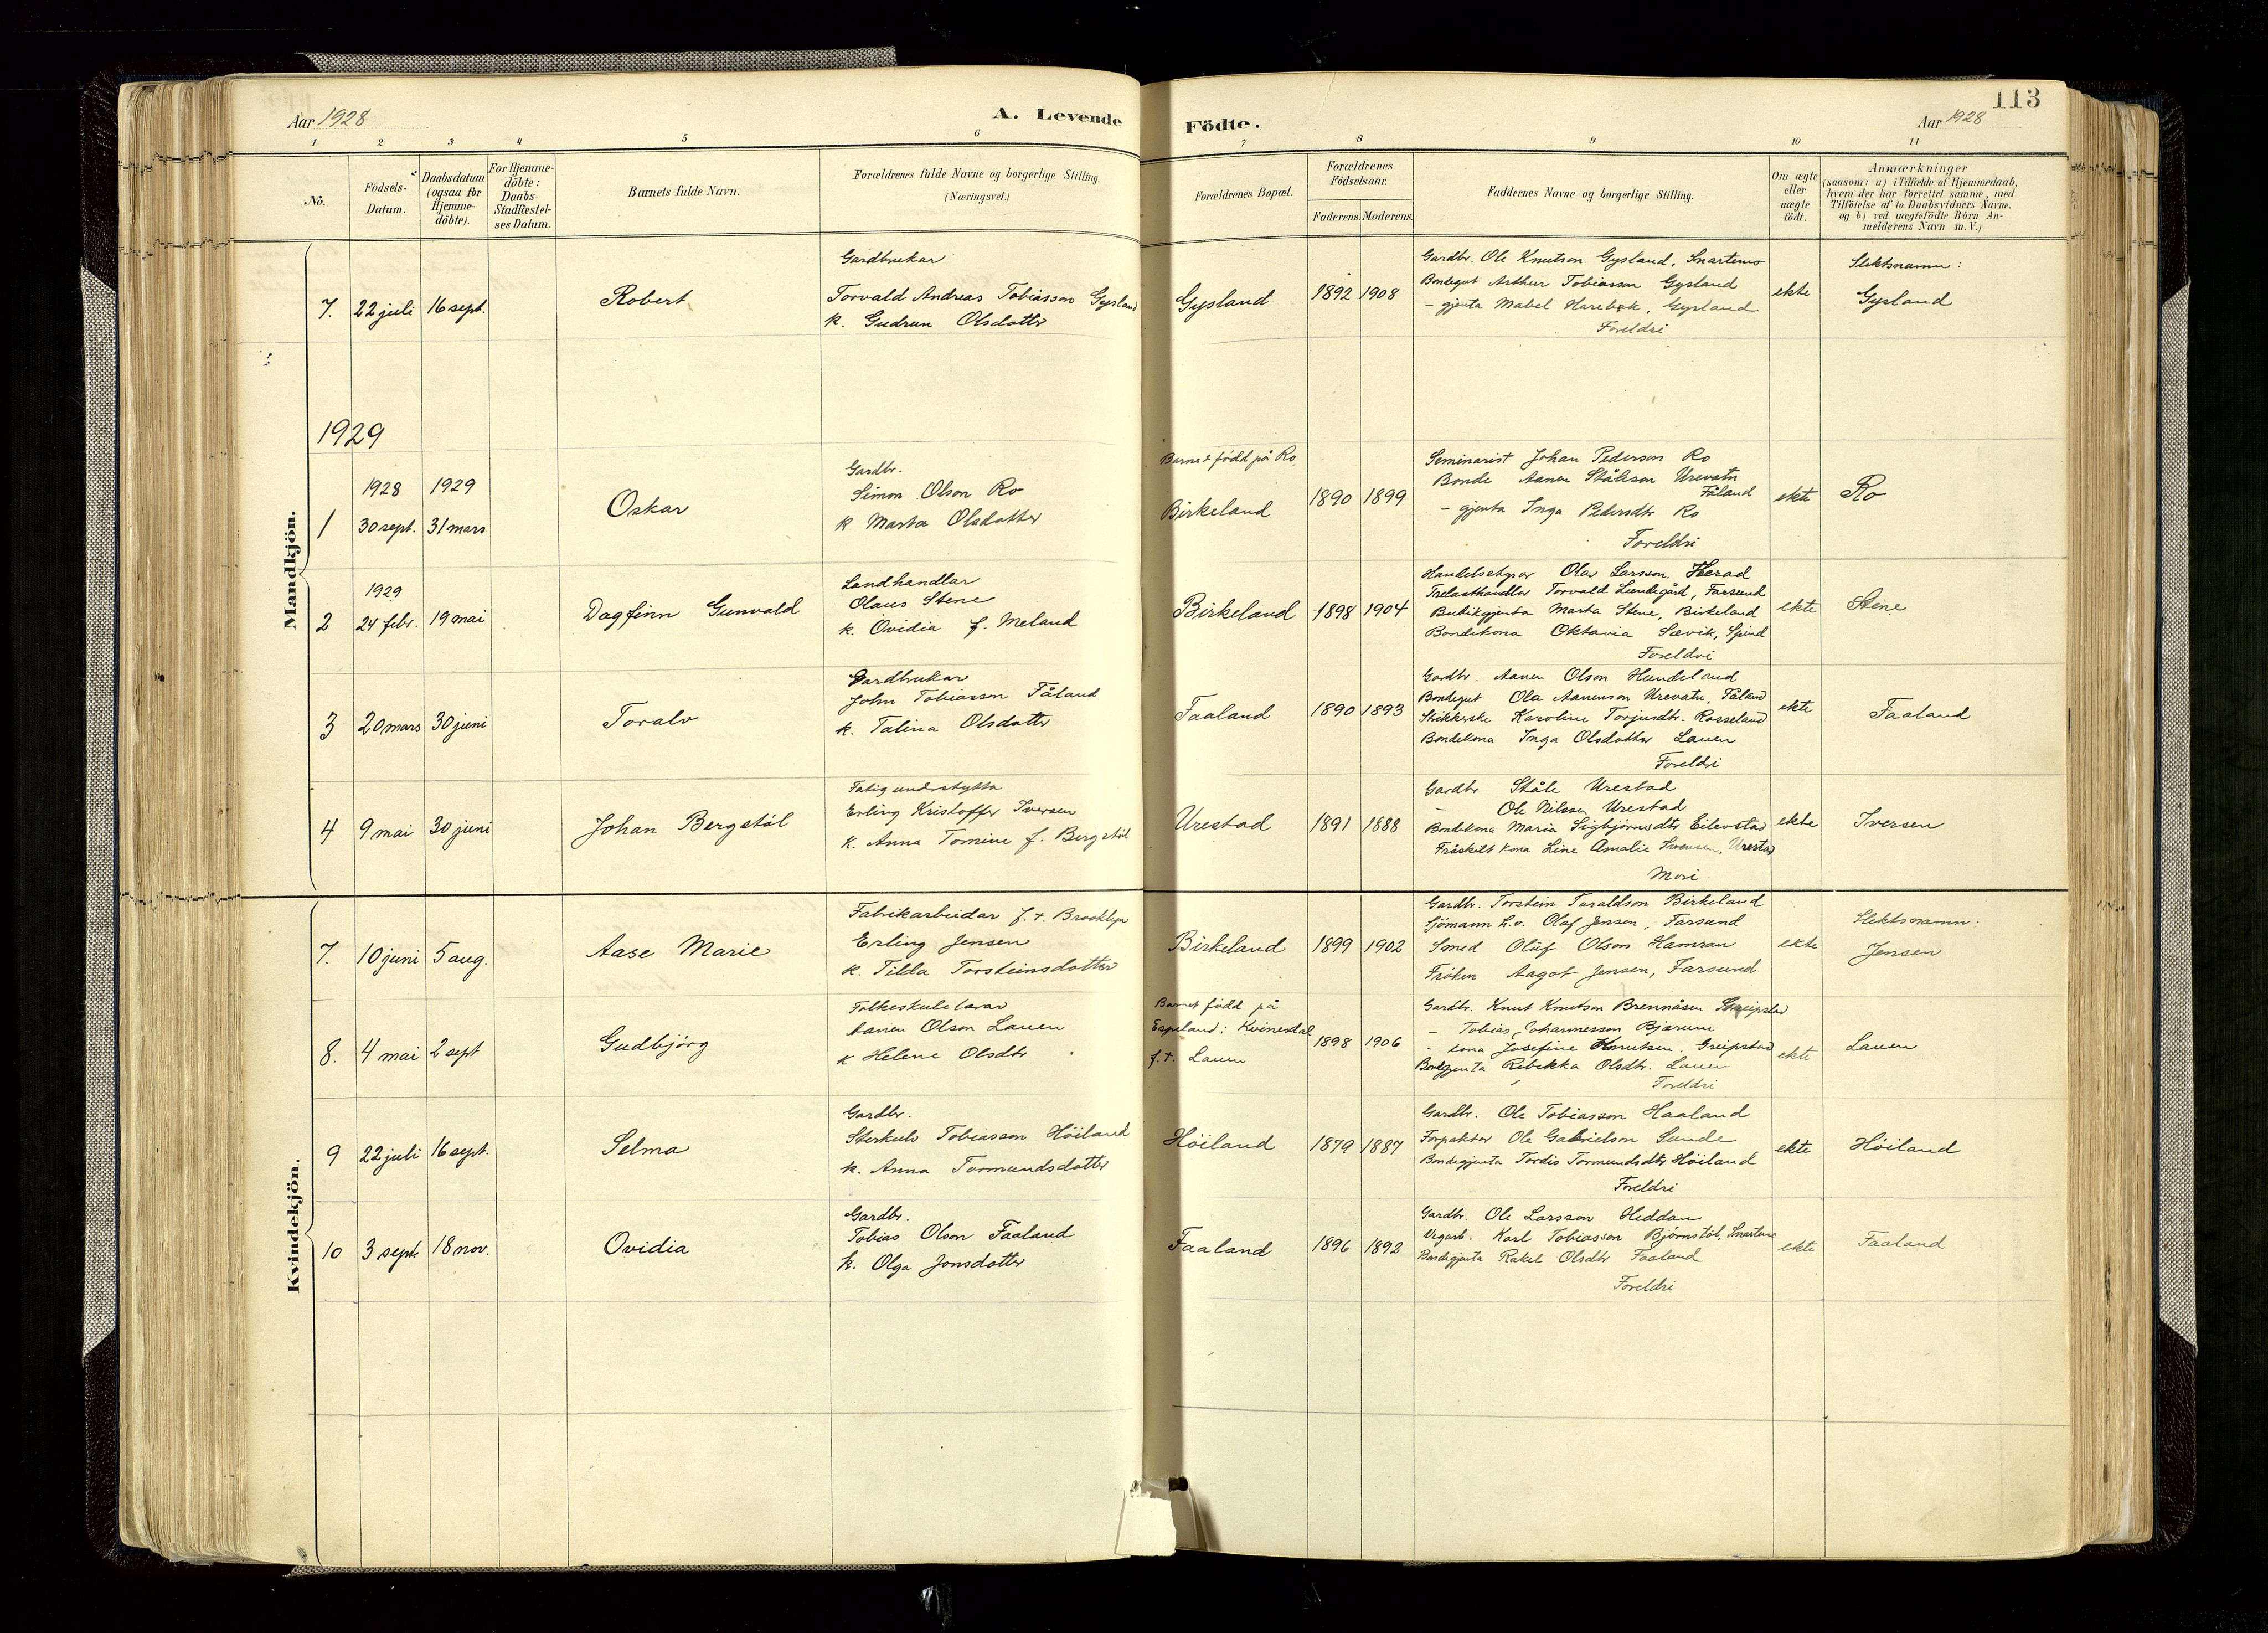 Aar 1928
A. Levende
Födte.
Aar 1928
113
1 2 3 4 5 6 7 8 9 10 11
No.
Födsels-
Datum.
Daabsdatum
(ogsaa for
Hjemme-
döbte).
For Hjemme-
döbte:
Daabs-
Stadfæstel-
ses Datum.
Barnets fulde Navn.
Forældrenes fulde Navne og borgerlige Stilling.
(Næringsvei.)
Forældrenes Bopæl.
Forældrenes
Födselsaar.
Faderens. Moderens.
Faddernes Navne og borgerlige Stilling.
Om ægte
eller
uægte
födt.
Anmærkninger
(saasom: a) i Tilfælde af Hjemmedaab,
hvem der har forrettet samme, med
Tilföielse af to Daabsvidners Navne.
og b) ved uægtefödte Börn An-
melderens Navn m. V.)
Mandkjön.
7. 22 juli 16 sept.
Robert
Gardbrukar
Torvald Andreas Tobiasson Gysland
k. Gudrun Olsdotter
Gysland
1892 1908
Gardbr. Ole Knutson Gysland, Snartemo
Bondegut Arthur Tobiasson Gysland
- gjenta Mabel Harebak, Gysland
Foreldri
ekte
Slektsnamn:
Gysland
1929
1928 1929
1 30 sept. 31 mars
Oskar
Gardbr.
Simon Olson Ro
k Marta Olsdotter
Barnet född på Ro
Birkeland
1890 1899
Seminarist Johan Pederson Ro
Bonde Aanen Ståleson Urevatn
Fåland
- gjenta Inga Pedersdtr Ro
Foreldri
ekte
Ro
1929
2 24 febr. 19 mai
Dagfinn Gunvald
Landhandlar
Olaus Stene
k. Ovidia f. Meland
Birkeland
1898 1904
Handelsstyrar Olav Larsson, Herad
Trelasthandlar Torvald Lundegård, Farsund
Butikgjenta Marta Stene, Birkeland
Bondekona Oktavia Sævik, Spind
Foreldri
ekte
Stene
3 20 mars 30 juni
Toralv
Gardbrukar
John Tobiasson Fåland
k. Talina Olsdotter
Faaland
1890 1893
Gardbr. Aanen Olson Hundeland
Bondegut Ola Aanenson Urevatn, Fåland
Strikkerske Karoline Torjusdtr. Rosseland
Bondekona Inga Olsdotter Lauen
Foreldri
ekte
Faaland
4 9 mai 30 juni
Johan Bergstöl
Fatigunderstytta
Erling Kristoffer Iversen
k. Anna Tomine f. Bergstöl
Urestad
1891 1888
Gardbr Ståle Urestad
- Ole Nilssen Urestad
Bondekona Maria Sigbjørnsdtr Eilevstad
Fråskilt kona Line Amalie Svensen, Urestad
Mori
ekte
Iversen
Kvindekjön.
7. 10 juni 5 aug.
Aase Marie
Fabrikarbeidar f. t. Brooklyn
Erling Jensen
k. Tilla Torsteinsdotter
Birkeland
1899 1902
Gardbr. Torstein Taraldson Birkeland
Sjömann h.v. Olaf Jensen, Farsund
Smed Oluf Olson Hamran
Frøken Aagot Jensen, Farsund
ekte
Slektsnamn:
Jensen
8. 4 mai 2 sept
Gudbjörg
Folkeskulelærar
Aanen Olson Lauen
k Helene Olsdtr
Barnet född på
Espeland i Kvinesdal
f.t. Lauen
1898 1906
Gardbr. Knut Knutson Brennåsen Greipstad
- Tobias Johannesson Bjærum
- kona Josefine Knutsen. Greipstad
Bondegjenta Rebekka Olsdtr. Lauen
Foreldri
ekte
Lauen
9 22 juli 16 sept.
Selma
Gardbr.
Sterkulv Tobiasson Höiland
k. Anna Tormundsdotter
Höiland
1879 1887
Gardbr. Ole Tobiasson Haaland
Forpaktar Ole Gabrielson Sande
Bondegjenta Tordis Tormundsdtr Höiland
Foreldri
ekte
Höiland
10 3 sept. 18 nov.
Ovidia
Gardbr.
Tobias Olson Faaland
k. Olga Jonsdotter
Faaland
1896 1892
Gardbr. Ole Larsson Heddan
Vegarb. Karl Tobiasson Bjørnstöl, Snartemo
Bondegjenta Rakel Olsdtr Faaland
Foreldri
ekte
Faaland